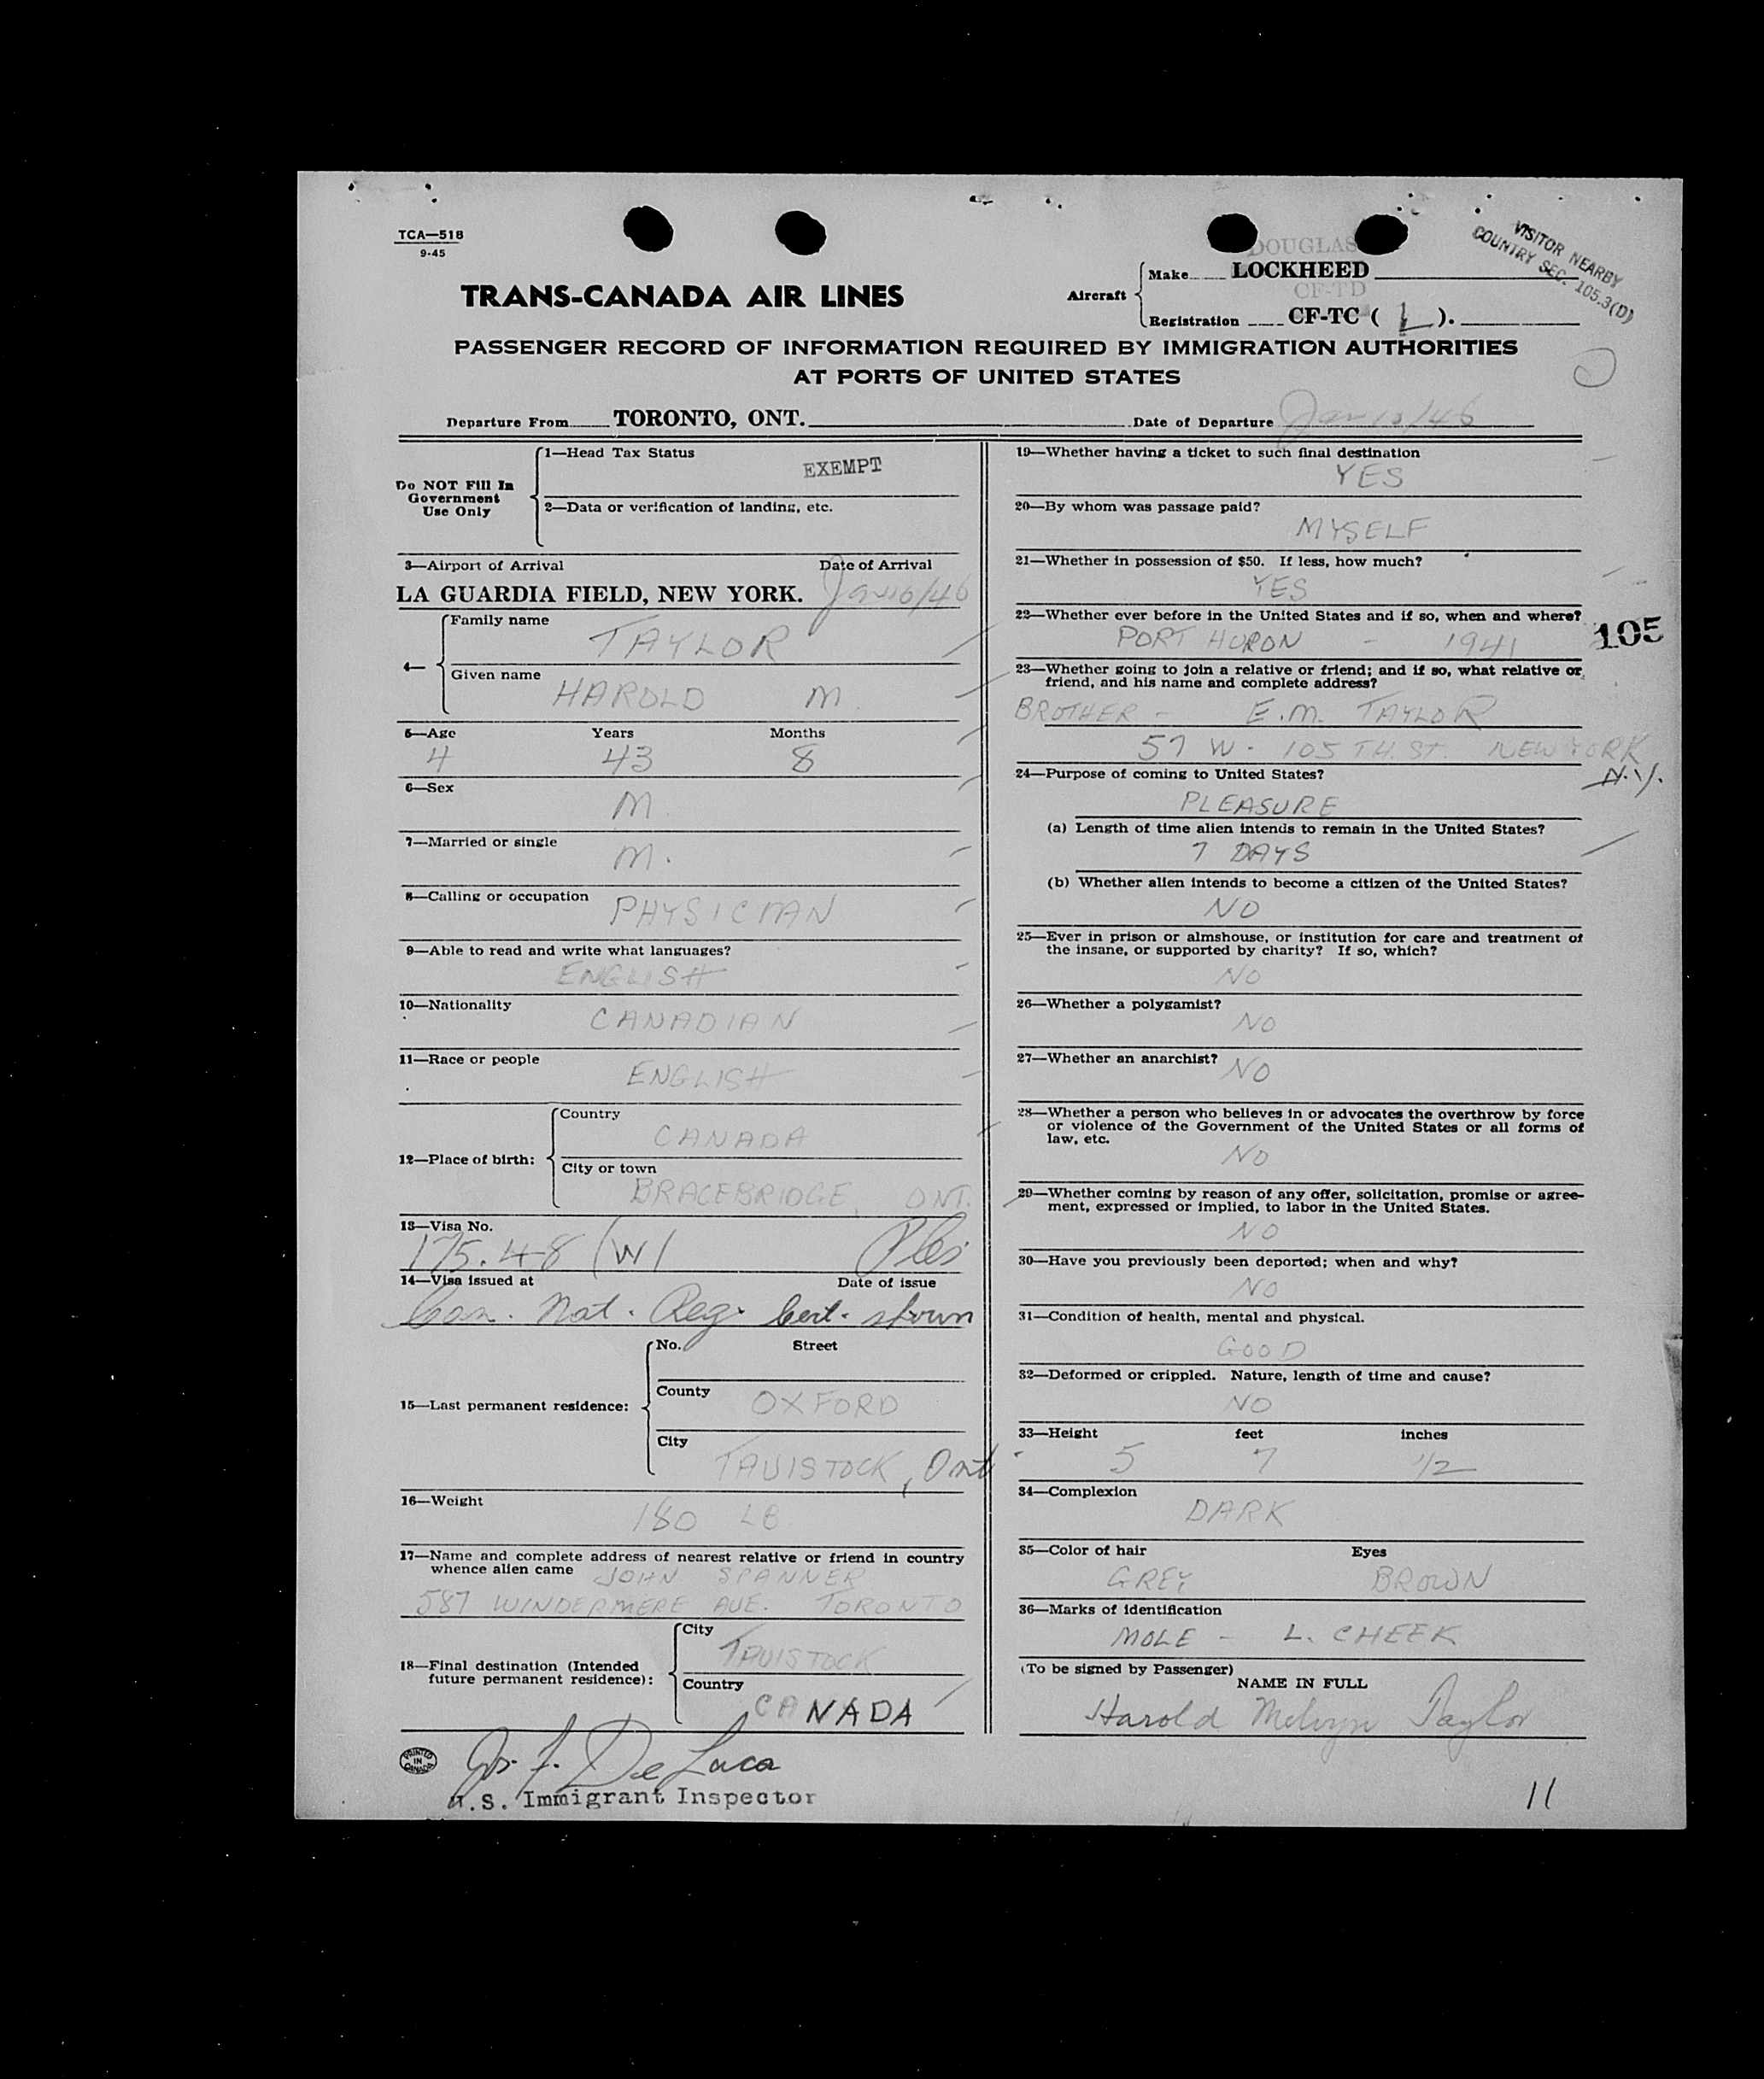 TCA—518
9-45
DOUGLAS
VISITOR NEARBY
COUNTRY SEC. 105.3(D)
TRANS-CANADA AIR LINES
Aircraft
Make LOCKHEED
CF-TD
Registration CF-TC ( L ).
PASSENGER RECORD OF INFORMATION REQUIRED BY IMMIGRATION AUTHORITIES
AT PORTS OF UNITED STATES
Departure From TORONTO, ONT. Date of Departure Jan 10/46
Do NOT Fill In
Government
Use Only
1—Head Tax Status
EXEMPT
2—Data or verification of landing, etc.
3—Airport of Arrival Date of Arrival
LA GUARDIA FIELD, NEW YORK. Jan 10/46
4—
Family name
TAYLOR
Given name
HAROLD M.
5—Age Years Months
4 43 8
6—Sex
M.
7—Married or single
M.
8—Calling or occupation
PHYSICIAN
9—Able to read and write what languages?
ENGLISH
10—Nationality
CANADIAN
11—Race or people
ENGLISH
12—Place of birth:
Country
CANADA
City or town
BRACEBRIDGE, ONT.
13—Visa No.
175.48 (W) Ples
14—Visa issued at Date of issue
Can. Nat. Reg. Cert. shown
15—Last permanent residence:
No. Street
County
OXFORD
City
TAVISTOCK, Ont
16—Weight
180 LB
17—Name and complete address of nearest relative or friend in country
whence alien came JOHN SPANNER
587 WINDERMERE AVE. TORONTO
18—Final destination (Intended
future permanent residence):
City
TAVISTOCK
Country
CANADA
19—Whether having a ticket to such final destination
YES
20—By whom was passage paid?
MYSELF
21—Whether in possession of $50. If less, how much?
YES
22—Whether ever before in the United States and if so, when and where?
PORT HURON - 1941
105
23—Whether going to join a relative or friend; and if so, what relative or
friend, and his name and complete address?
BROTHER - E.M. TAYLOR
57 W. 105TH. ST. NEW YORK
N.Y.
24—Purpose of coming to United States?
PLEASURE
(a) Length of time alien intends to remain in the United States?
7 DAYS
(b) Whether alien intends to become a citizen of the United States?
NO
25—Ever in prison or almshouse, or institution for care and treatment of
the insane, or supported by charity? If so, which?
NO
26—Whether a polygamist?
NO
27—Whether an anarchist?
NO
28—Whether a person who believes in or advocates the overthrow by force
or violence of the Government of the United States or all forms of
law, etc.
NO
29—Whether coming by reason of any offer, solicitation, promise or agree-
ment, expressed or implied, to labor in the United States.
NO
30—Have you previously been deported; when and why?
NO
31—Condition of health, mental and physical.
GOOD
32—Deformed or crippled. Nature, length of time and cause?
NO
33—Height feet inches
5 7 1/2
34—Complexion
DARK
35—Color of hair Eyes
GREY BROWN
36—Marks of identification
MOLE - L. CHEEK
(To be signed by Passenger)
NAME IN FULL
Harold Melvyn Taylor
PRINTED
IN
CANADA
Jos. F. De Luca
U.S. Immigrant Inspector
11